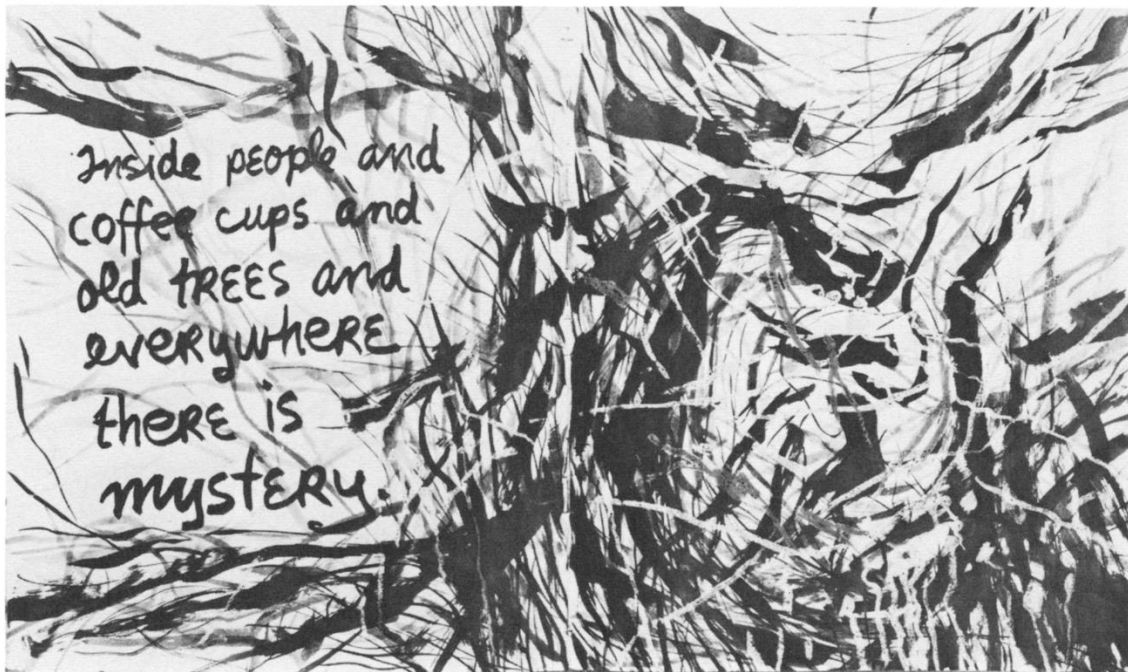 Inside people and
coffee cups and
old TREES and
everywhere
there is
mystery.